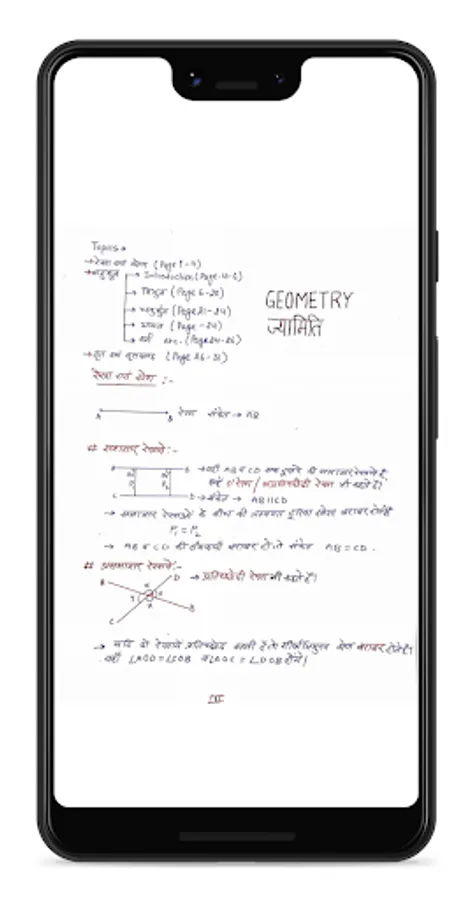 Topics
→ रेखा एवं कोण (Page 1-4)
→ बहुभुज → Introduction (Page-4-6)
→ त्रिभुज (Page 6-20)
→ चतुर्भुज (Page 21-24)
→ आयत (Page -24)
→ वर्ग etc. (Page 24-26)
→ वृत्त एवं वृत्तखण्ड (Page 26-31)
GEOMETRY
ज्यामिति
रेखा एवं कोण :-
A B रेखा संकेत → AB
# समान्तर रेखायें :-
A B → यहाँ AB व CD एक दूसरे की समान्तर रेखायें हैं
इन्हें रेखा / अप्रतिच्छेदी रेखा भी कहते हैं।
P₁ P₂
C D → संकेत → AB || CD
→ समान्तर रेखाओं के बीच की लम्बवत दूरियां हमेशा बराबर होती हैं
P₁ = P₂
→ AB व CD की लम्बाई बराबर हो तो संकेत AB = CD.
# असमान्तर रेखायें :-
→ प्रतिच्छेदी रेखा भी कहते हैं।
A D
C B
→ यदि दो रेखायें प्रतिच्छेद करती हैं तो शीर्षाभिमुख कोण बराबर होते हैं।
यहाँ ∠AOD = ∠COB व ∠AOC = ∠DOB होंगे।